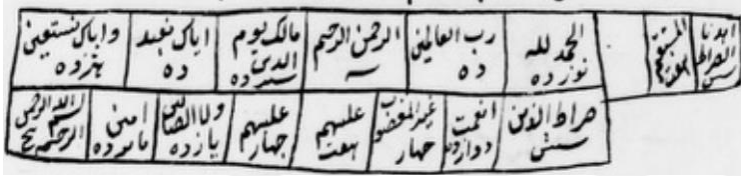 اهدنا
الصراط
المستقیم
هفت
الحمد لله
نوزده
رب العالمین
ده
الرحمن الرحیم
سه
مالک یوم
الدین
ایاک نعبد
ده
وایاک نستعین
هژده
صراط الذین
شش
انعمت
دوازده
غیر المغضوب
چهار
علیهم
هفت
علیهم
چهار
ولا الضالین
یازده
امین
بسم الله الرحمن
الرحیم